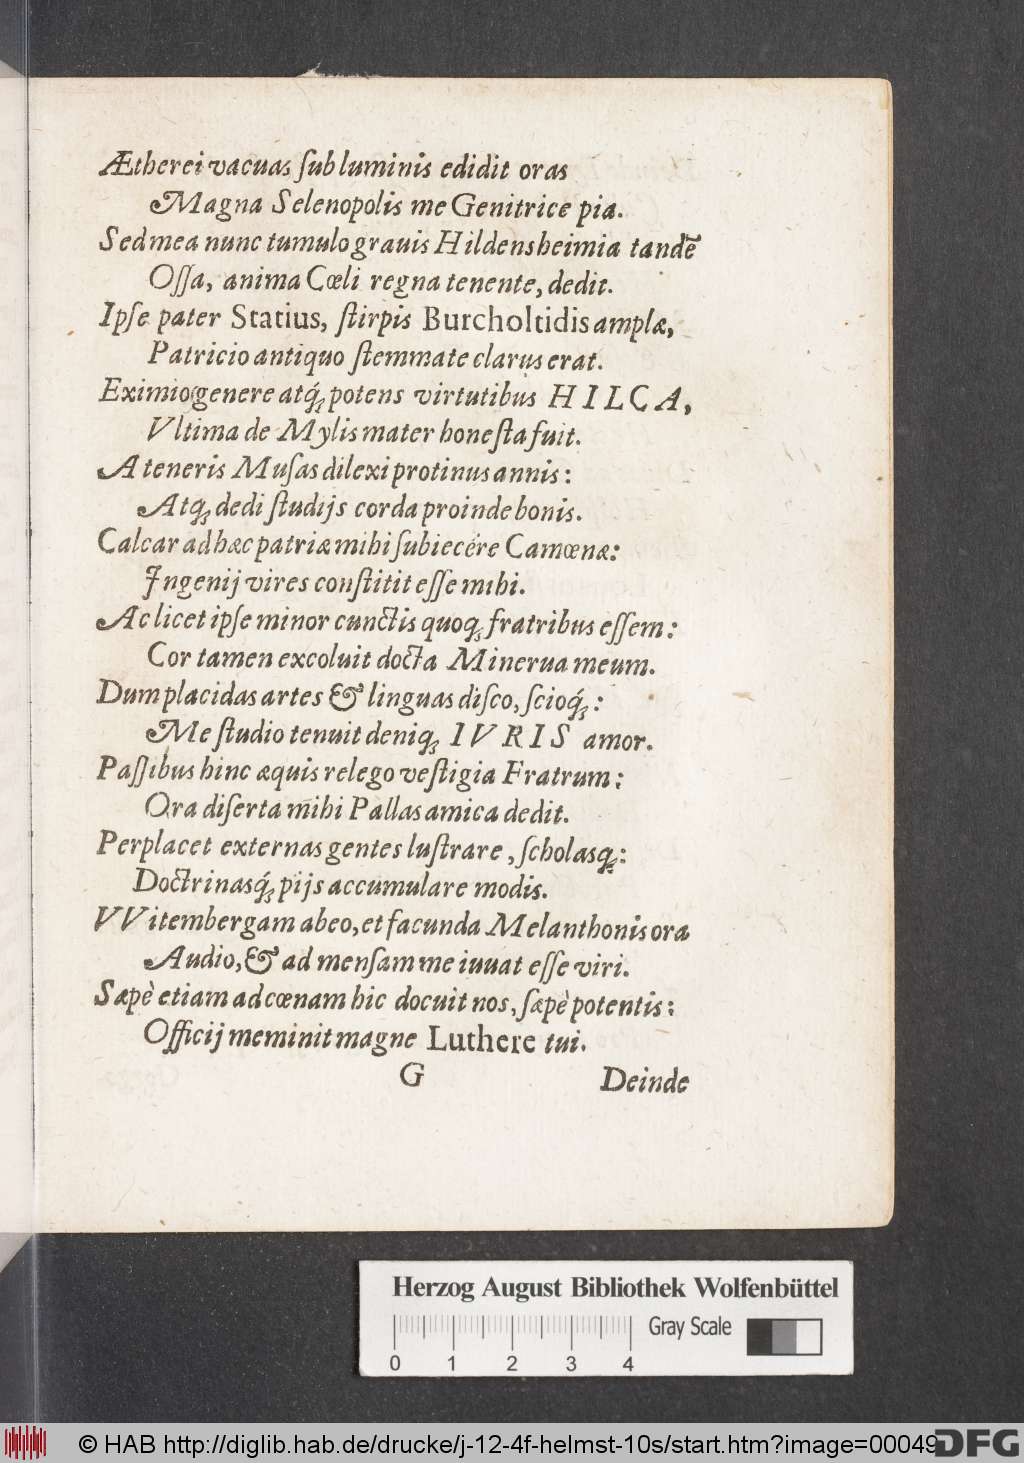 Ætherei vacuas ſub luminis edidit oras
Magna Selenopolis me Genitrice pia.
Sed mea nunc tumulo grauis Hildensheimia tandē
Oſſa, anima Cœli regna tenente, dedit.
Ipſe pater Statius, ſtirpis Burcholtidis amplæ,
Patricio antiquo ſtemmate clarus erat.
Eximio genere atq́; potens virtutibus HILCA,
Vltima de Mylis mater honeſta fuit.
A teneris Muſas dilexi protinus annis:
Atq; dedi ſtudijs corda proinde bonis.
Calcar ad hæc patriæ mihi ſubiecére Camœnæ:
Ingenij vires conſtitit eſſe mihi.
Ac licet ipſe minor cunctis quoq; fratribus eſſem:
Cor tamen excoluit docta Minerua meum.
Dum placidas artes & linguas diſco, ſcioq́;:
Me ſtudio tenuit deniq; IVRIS amor.
Paſſibus hinc æquis relego veſtigia Fratrum:
Ora diſerta mihi Pallas amica dedit.
Perplacet externas gentes luſtrare, ſcholasq;:
Doctrinasq́; pijs accumulare modis.
VVitembergam abeo, et facunda Melanthonis ora
Audio, & ad menſam me iuuat eſſe viri.
Sæpè etiam ad cœnam hic docuit nos, ſæpè potentis:
Officij meminit magne Luthere tui.
G Deinde
Herzog August Bibliothek Wolfenbüttel
Gray Scale
0 1 2 3 4
© HAB http://diglib.hab.de/drucke/j-12-4f-helmst-10s/start.htm?image=00049
DFG